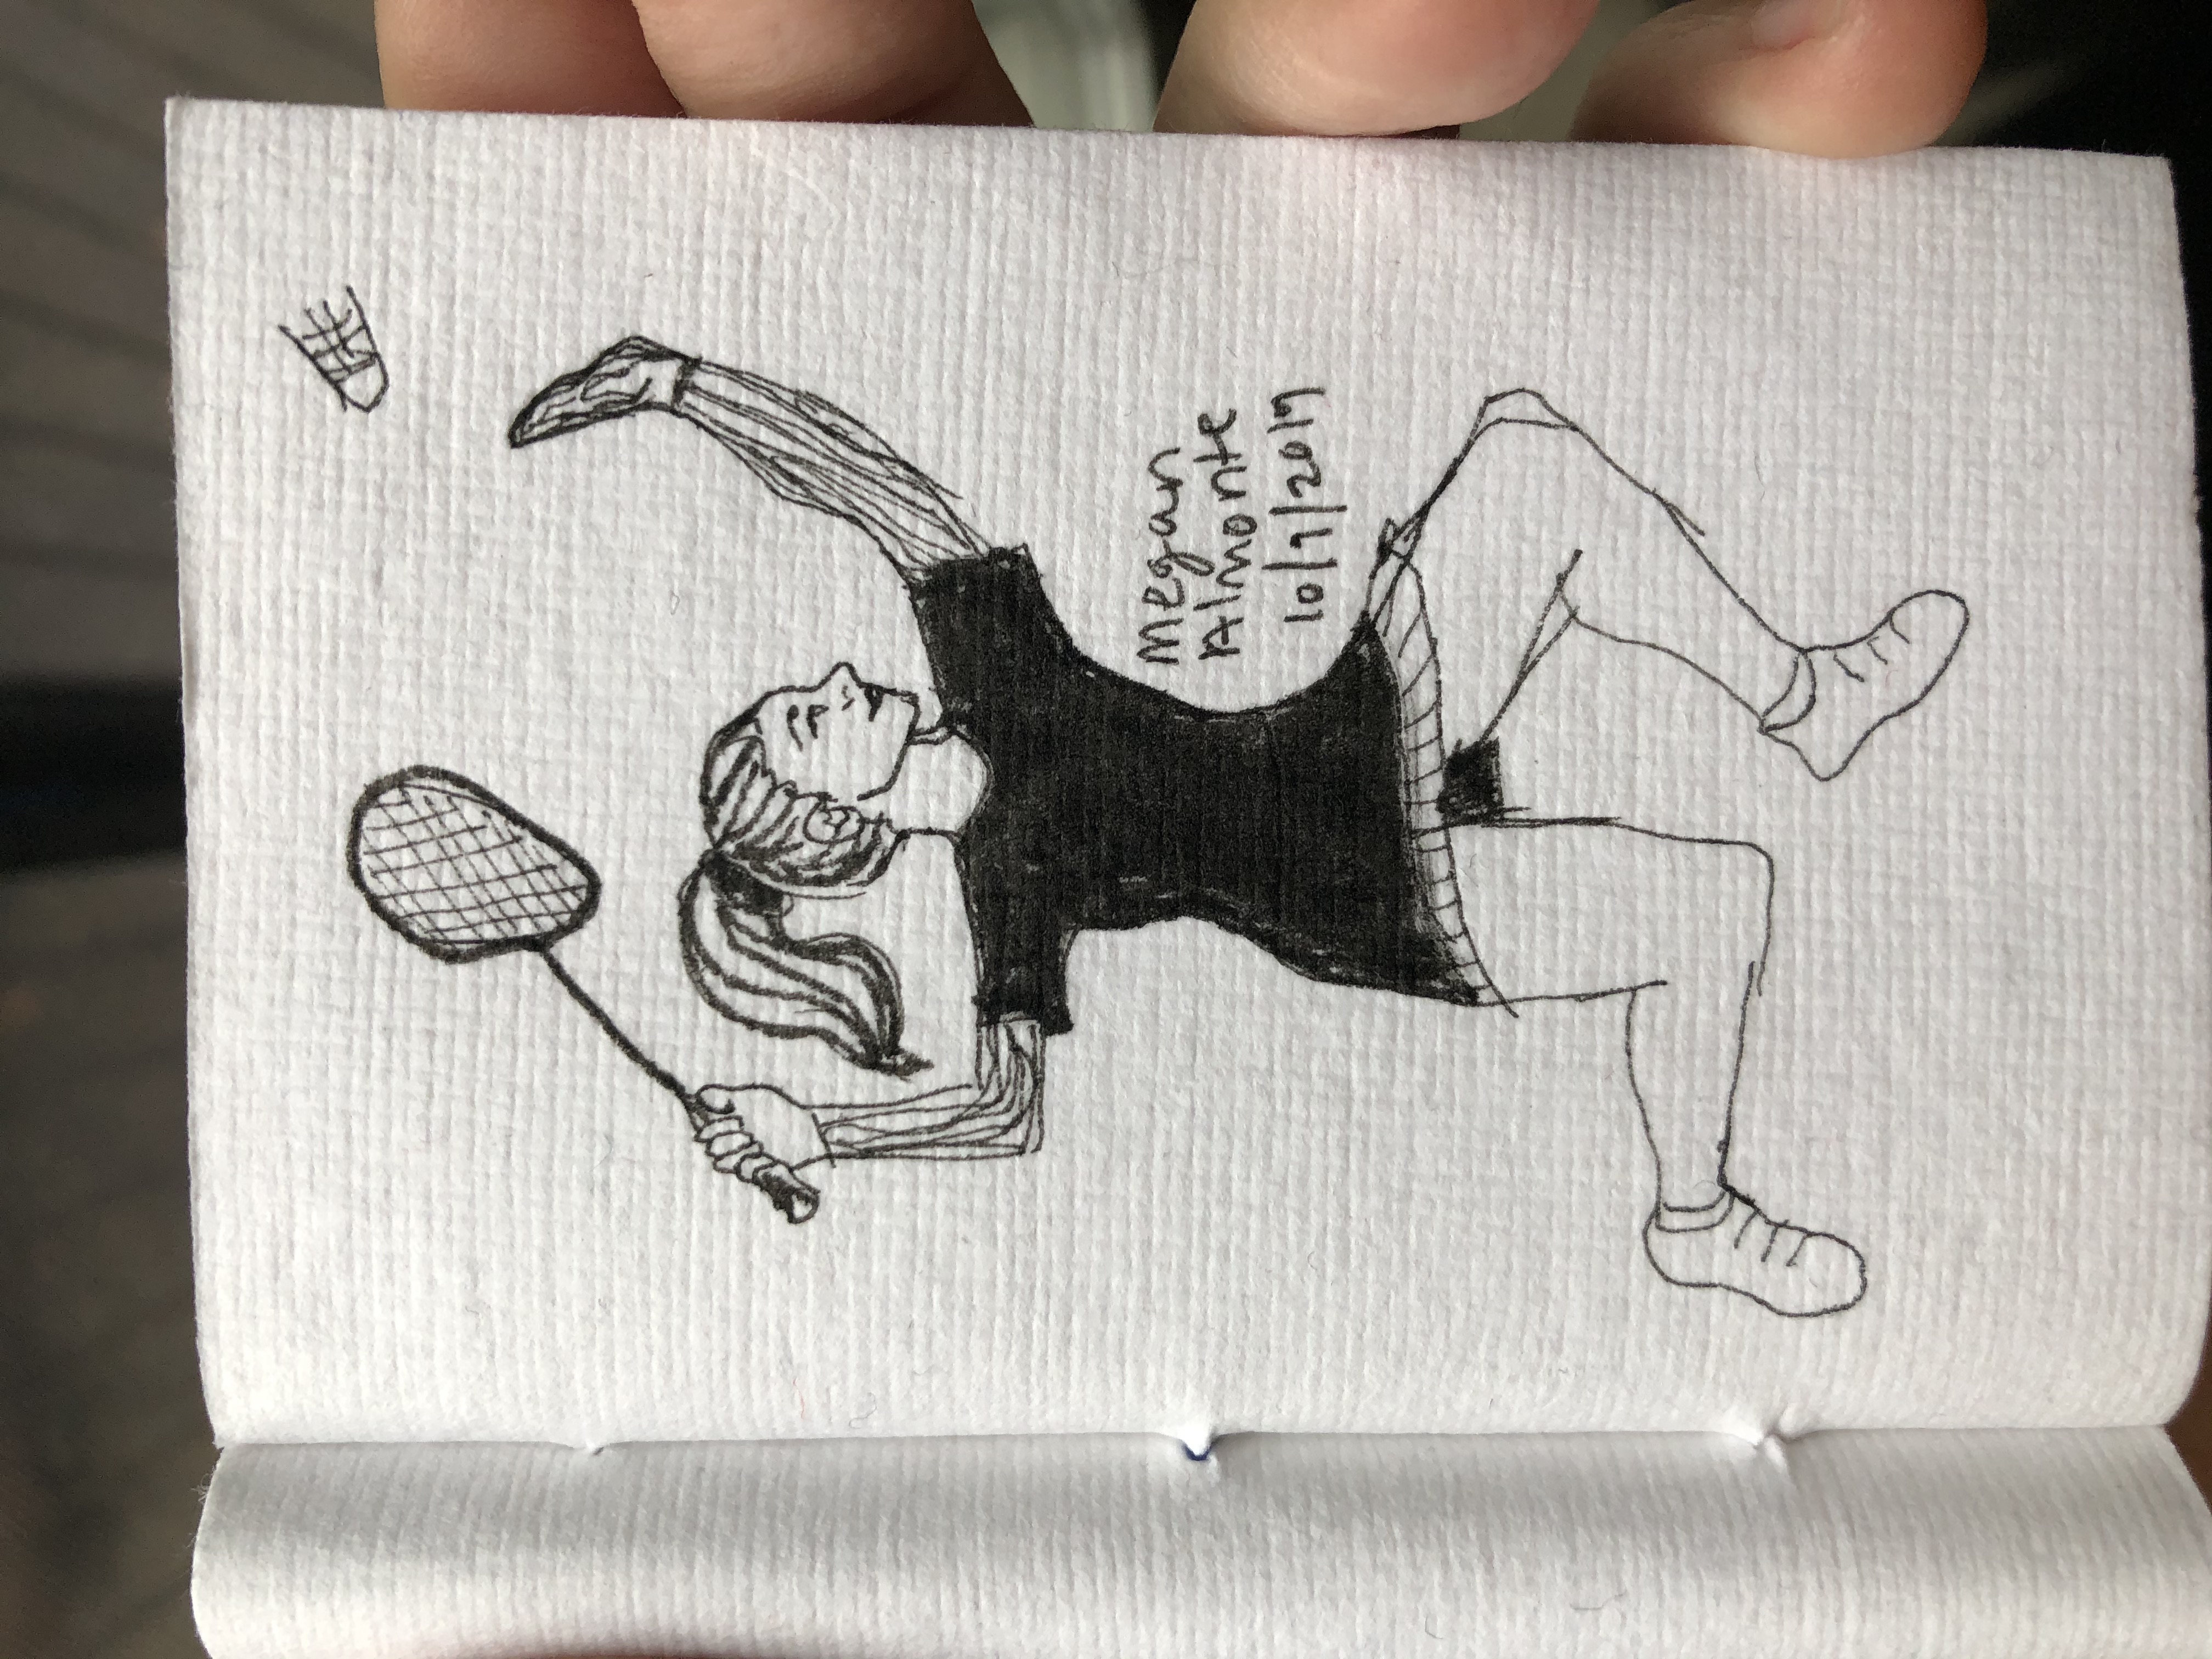 Megan
Almonte
10/9/2019